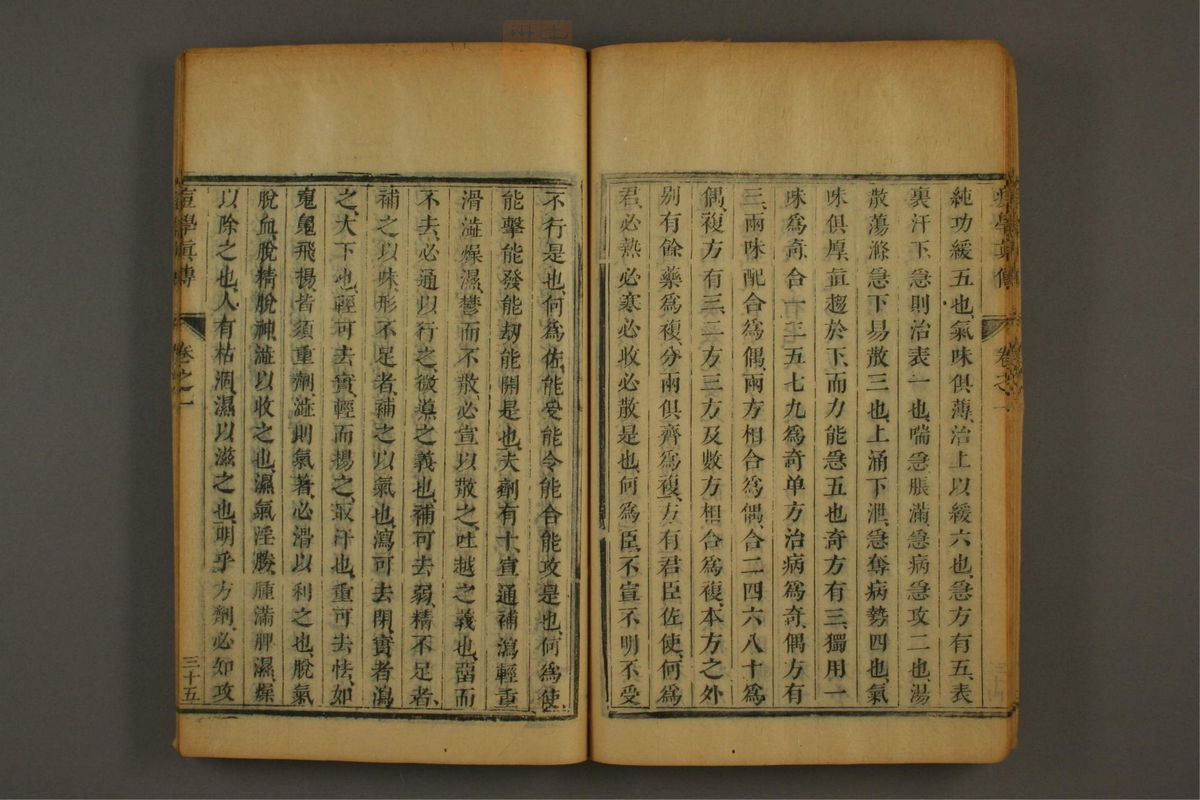 純功緩五也氣味俱薄治上以緩六也急方有五表
裏汗下急則治表一也喘急脹滿急病急攻二也湯
散蕩滌急下易散三也上涌下泄急奪病勢四也氣
味俱厚直趨於下而力能急五也奇方有三獨用一
味爲奇合一三五七九爲奇单方治病爲奇偶方有
三兩味配合爲偶兩方相合爲偶合二四六八十爲
偶複方有三二方三方及數方相合爲複本方之外
别有餘藥爲複分兩俱齊爲複方有君臣佐使何爲
君必熱必寒必收必散是也何爲臣不宣不明不受
不行是也何爲佐能受能令能合能攻是也何爲使
能擊能發能劫能開是也夫劑有十宣通補瀉輕重
滑澁燥濕鬱而不散必宣以散之吐越之義也留而
不去必通以行之微導之義也補可去弱精不足者
補之以味形不足者補之以氣也瀉可去閉實者瀉
之大下也輕可去實輕而揚之取汗也重可去怯如
䰟魄飛揚皆須重劑澁則氣著必滑以利之也脫氣
脫血脫精脫神澁以收之也濕氣淫勝腫滿脾濕燥
以除之也人有枯涸濕以滋之也明乎方劑必知攻
痘學眞傳 卷之一 三十五